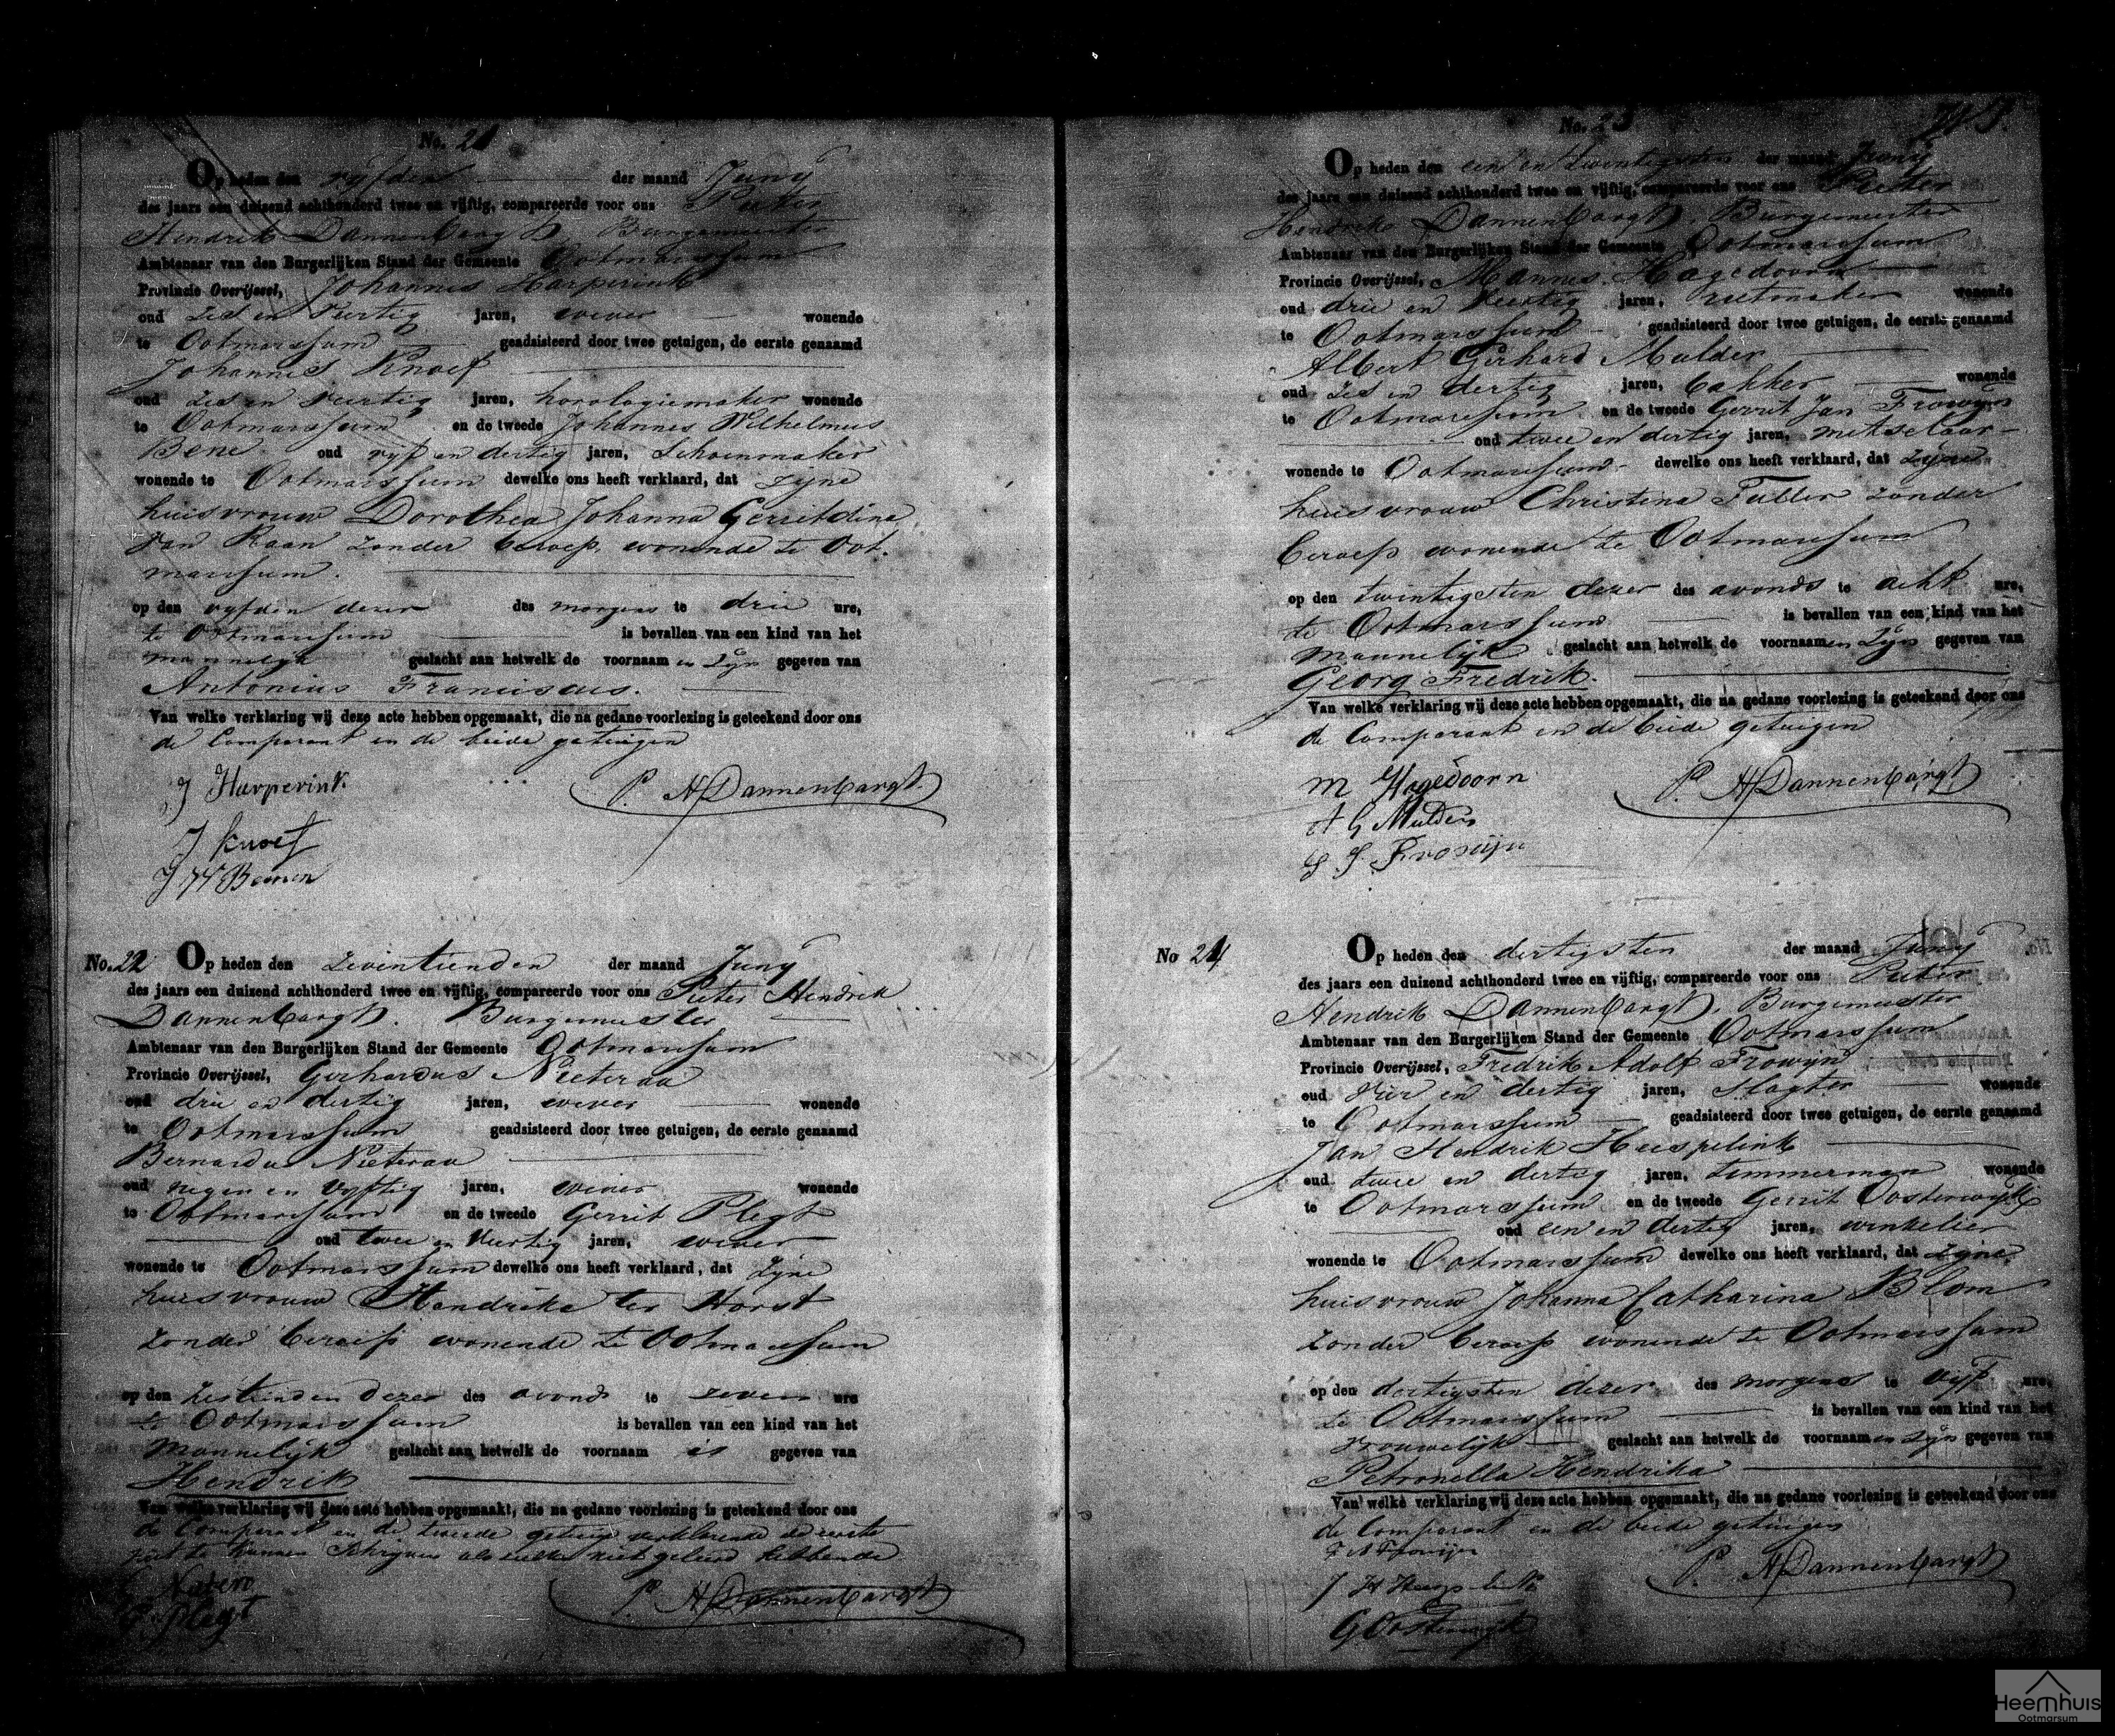 No. 21
Op heden den vyfden der maand Juny
des jaars een duizend achthonderd twee en vijftig, compareerde voor ons Pieter
Hendrik Dannenbargh Burgemeester
Ambtenaar van den Burgerlijken Stand der Gemeente Ootmarssum
Provincie Overijssel, Johannes Harperink
oud zes en veertig jaren, wever wonende
te Ootmarssum geadsisteerd door twee getuigen, de eerste genaamd
Johannes Knoef
oud zes en veertig jaren, horologiemaker wonende
te Ootmarssum en de tweede Johannes Wilhelmus
Bene oud vyf en dertig jaren, Schoenmaker
wonende te Ootmarssum dewelke ons heeft verklaard, dat zyne
huisvrouw Dorothea Johanna Gerritdina
van Raan zonder beroep wonende te Oot-
marssum.
op den vyfden dezer des morgens te drie ure,
te Ootmarssum is bevallen van een kind van het
mannelyk geslacht aan hetwelk de voornaamen zyn gegeven van
Antonius Franciscus.
Van welke verklaring wij deze acte hebben opgemaakt, die na gedane voorlezing is geteekend door ons
de Comparant en de beide getuigen
J Harperink P. H Dannenbargh
J Knoef
J W Benen
No. 22 Op heden den zeventienden der maand Juny
des jaars een duizend achthonderd twee en vijftig, compareerde voor ons Pieter Hendrik
Dannenbargh. Burgemeester
Ambtenaar van den Burgerlijken Stand der Gemeente Ootmarssum
Provincie Overijssel, Gerhardus Nieterau
oud drie en dertig jaren, wever wonende
te Ootmarssum geadsisteerd door twee getuigen, de eerste genaamd
Bernardus Nieterau
oud negen en vyftig jaren, wever wonende
te Ootmarssum en de tweede Gerrit Plegt
oud twee en veertig jaren, wever
wonende te Ootmarssum dewelke ons heeft verklaard, dat zyne
huisvrouw Hendrika ter Horst
zonder beroep wonende te Ootmarssum
op den zestienden dezer des avonds te zeven ure
te Ootmarssum is bevallen van een kind van het
mannelijk geslacht aan hetwelk de voornaam is gegeven van
Hendrik
Van welke verklaring wij deze acte hebben opgemaakt, die na gedane voorlezing is geteekend door ons
de Comparant en de tweede getuige verklarende de eerste
niet te kunnen Schryven als zulks niet geleerd hebbende
P. H Dannenbargh
G. Plegt
No. 23
Op heden den een en twintigsten der maand Juny
des jaars een duizend achthonderd twee en vijftig, compareerde voor ons Pieter
Hendrik Dannenbargh. Burgemeester
Ambtenaar van den Burgerlijken Stand der Gemeente Ootmarssum
Provincie Overijssel, Mannes Hagedoorn
oud drie en veertig jaren, rietmaker wonende
te Ootmarssum geadsisteerd door twee getuigen, de eerste genaamd
Albert Gerhard Mulder
oud zes en dertig jaren, bakker wonende
te Ootmarssum en de tweede Gerrit Jan Frowyn
oud twee en dertig jaren, metselaar
wonende te Ootmarssum dewelke ons heeft verklaard, dat zyne
huisvrouw Christina Faller zonder
beroep wonende te Ootmarssum
op den twintigsten dezer des avonds te acht ure,
te Ootmarssum is bevallen van een kind van het
mannelijk geslacht aan hetwelk de voornaamen zyn gegeven van
Georg Fredrik.
Van welke verklaring wij deze acte hebben opgemaakt, die na gedane voorlezing is geteekend door ons
de Comparant en de beide getuigen
M Hagedoorn P. H Dannenbargh
A G Mulder
G. J. Frowijn
No 24 Op heden den dertigsten der maand Juny
des jaars een duizend achthonderd twee en vijftig, compareerde voor ons Pieter
Hendrik Dannenbargh. Burgemeester
Ambtenaar van den Burgerlijken Stand der Gemeente Ootmarssum
Provincie Overijssel, Fredrik Adolf Frowyn
oud vier en dertig jaren, Slagter wonende
te Ootmarssum geadsisteerd door twee getuigen, de eerste genaamd
Jan Hendrik Huspelink
oud twee en dertig jaren, timmerman wonende
te Ootmarssum en de tweede Gerrit Oosterwyk
oud een en dertig jaren, winkelier
wonende te Ootmarssum dewelke ons heeft verklaard, dat zyne
huisvrouw Johanna Catharina Blom
zonder beroep wonende te Ootmarssum
op den dertigsten dezer des morgens te vyf ure,
te Ootmarssum is bevallen van een kind van het
vrouwelyk geslacht aan hetwelk de voornaamen zyn gegeven van
Petronella Hendrika
Van welke verklaring wij deze acte hebben opgemaakt, die na gedane voorlezing is geteekend door ons
de Comparant en de beide getuigen
F A Frowijn
P. H Dannenbargh
G Oosterwyk
Heemhuis
Ootmarsum